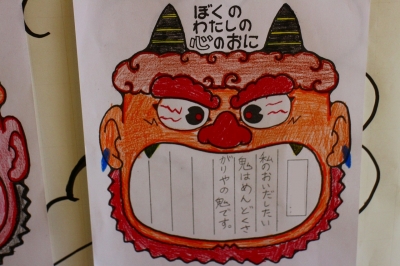 ぼくの
わたしの
心のおに
私のおいだしたい
鬼はめんどくさ
がりやの鬼です。